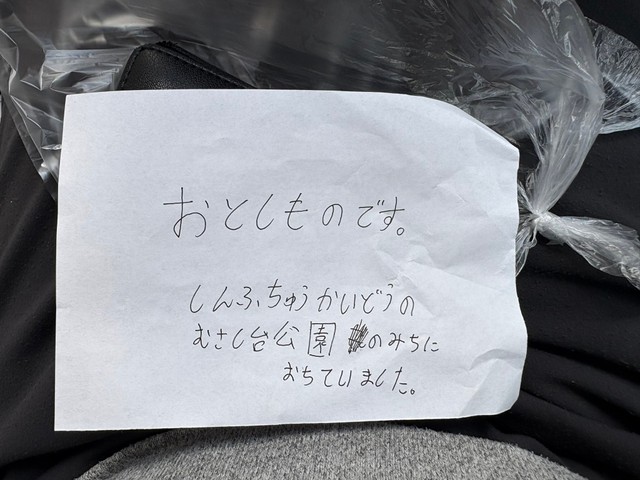 おとしものです。
しんふちゅうかいどうの
むさし台公園のみちに
おちていました。